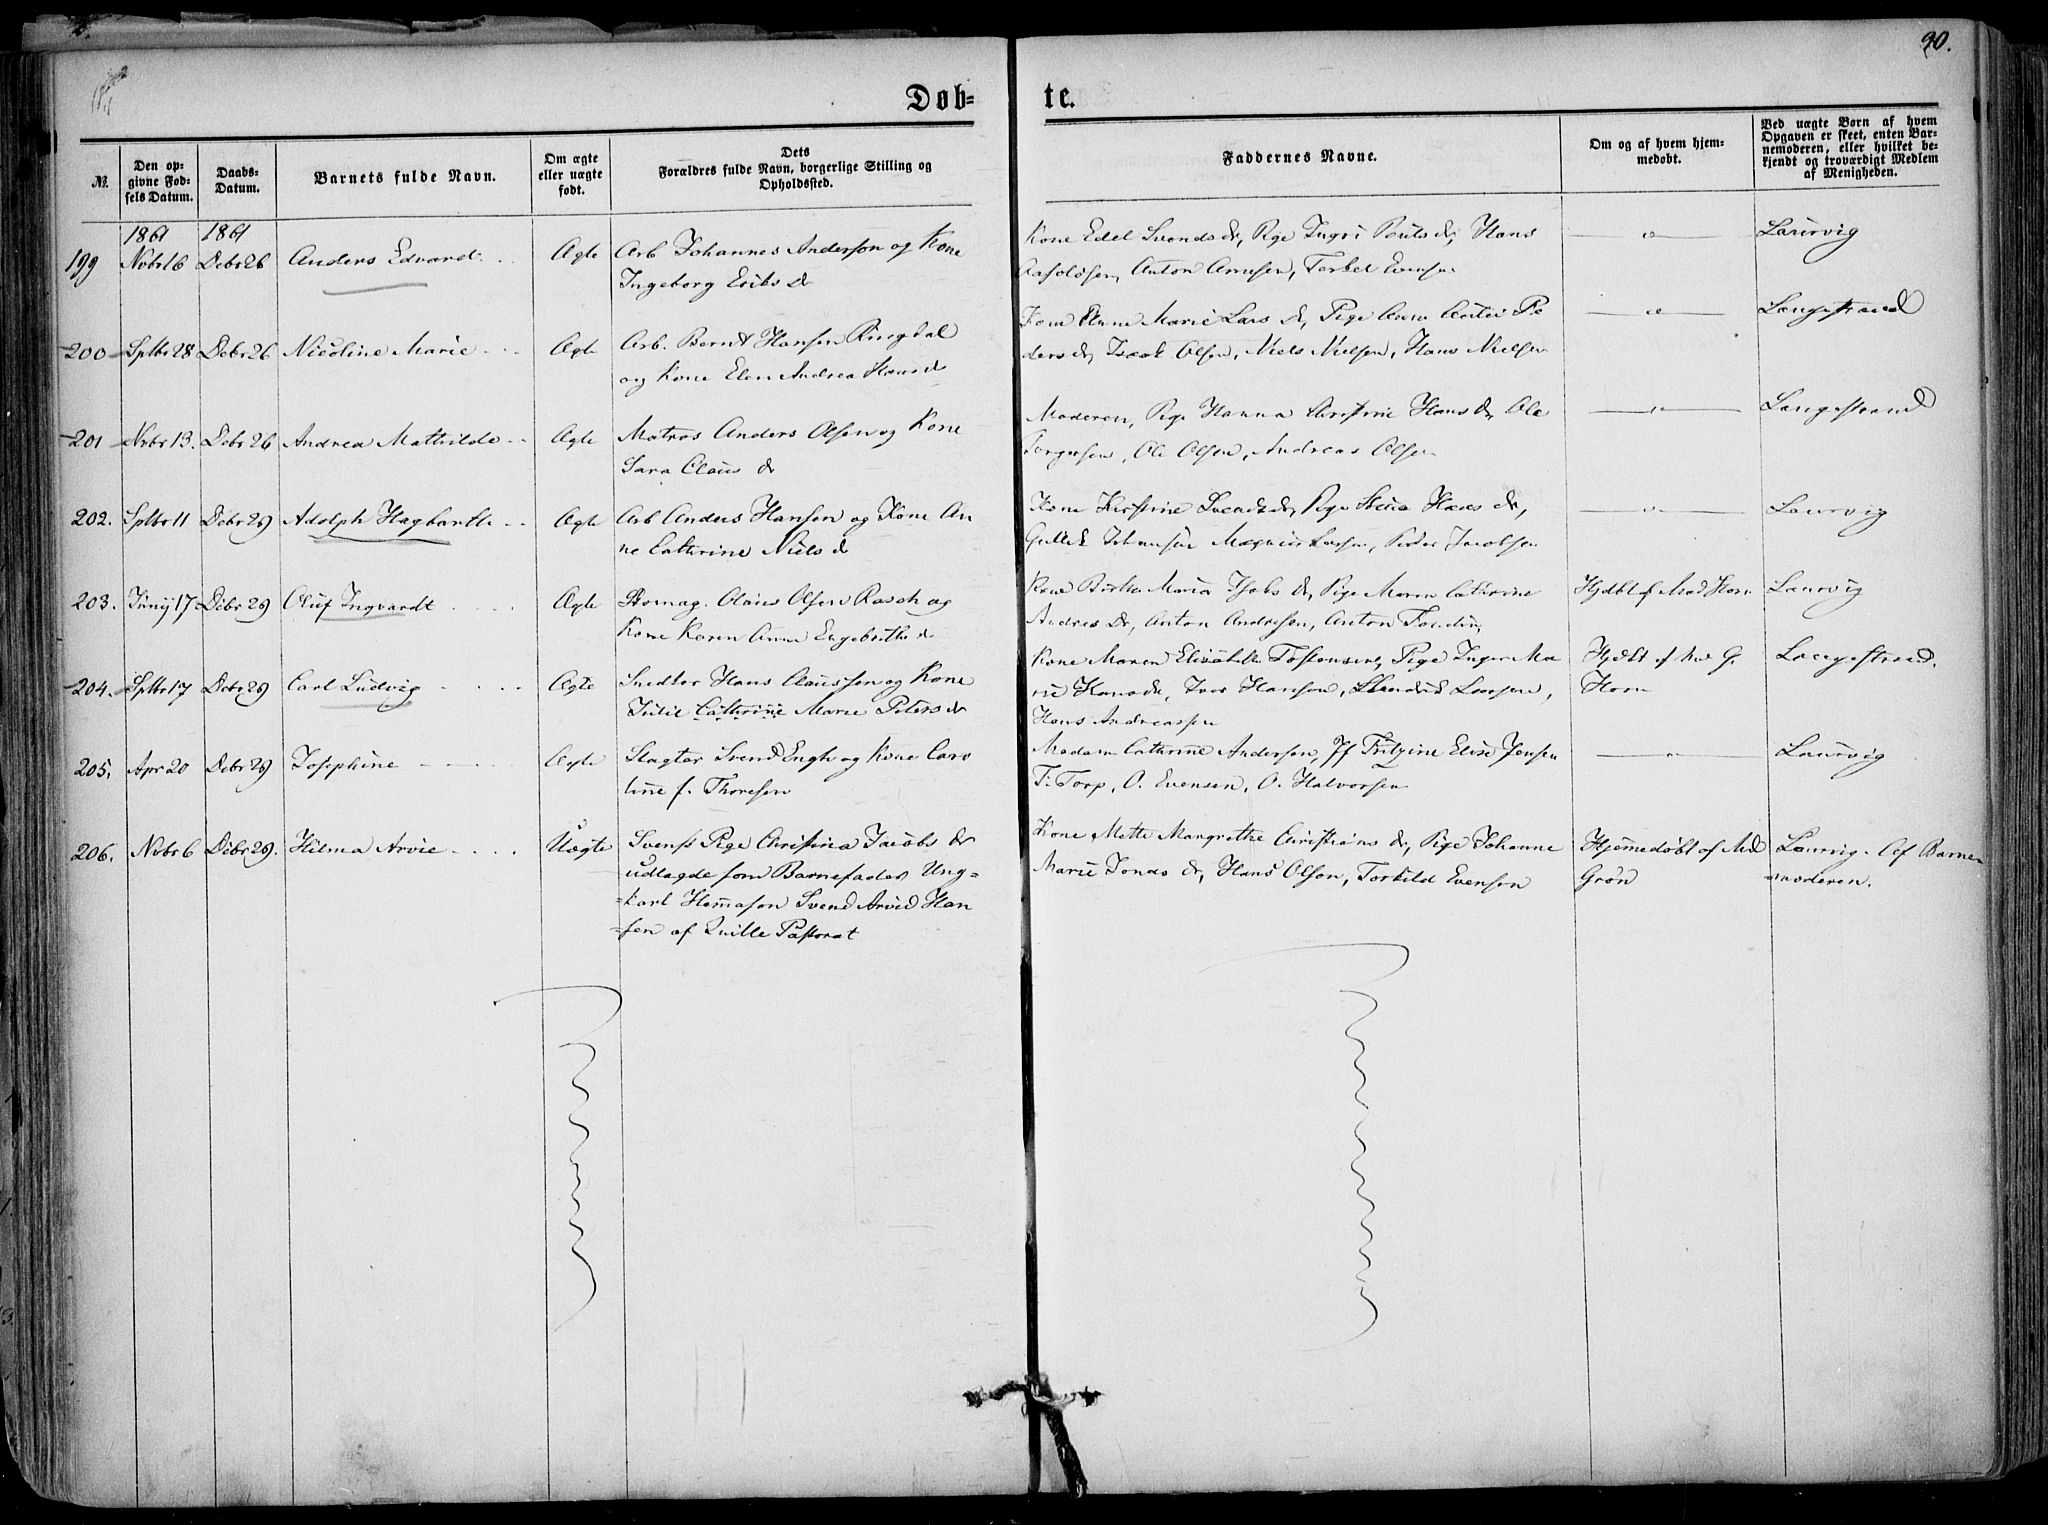 90.
Døb-
te.
№.
Den op-
givne Fød-
sels Datum.
Daabs-
Datum.
Barnets fulde Navn.
Om ægte
eller uægte
født.
Dets
Forældres fulde Navn, borgerlige Stilling og
Opholdssted.
Faddernes Navne.
Om og af hvem hjem-
medøbt.
Ved uægte Børn af hvem
Opgaven er skeet, enten Bar-
nemoderen, eller hvilket be-
kjendt og troværdigt Medlem
af Menigheden.
1861 1861
199 Nvbr 16 Debr 26 Anders Edvard Ægte Arb Johannes Anderson og Kone
Ingeborg Eriks d
Kone Edel Svends dr, Pige Ingri Pouls dr, Hans
Anton Arnesen, Torkel Evensen
Laurvig
200 Sptbr 28 Debr 26 Nicoline Marie Ægte Arb. Bernt Hansen Ringdal
og Kone Elen Andrea Hans d
Kone Anne Marie Lars d, Pige Pe
ders d, Isaak Olsen, Niels Nielsen, Hans Nielsen
Langestrand
201 Nvbr 13. Debr 26 Andrea Mathilde Ægte Matros Anders Olsen og Kone
Sara Claus d
Moderen, Pige Hanna Christine Hans dr, Ole
Torgersen, Ole Olsen, Andreas Olsen
Langestrand
202. Sptbr 11 Debr 29 Adolph Hagbarth Ægte Arb Anders Hansen og Kone An
ne Cathrine Niels d
Kone Kirstine Svends dr, Pige Hans dr,
Gullik Johansen Larsen, Peder Jacobsen
Laurvig
203. Juny 17 Debr 29 Oluf Ingvardt Ægte Skomag. Claus Olsen Rasch og
Kone Karen Anne Engebreths d
Kone Maria Jakobs dr, Pige Maren Cathrine
Andreas dr, Anton Andresen, Anton
Hjdbt af Mad Horn
Laurvig
204. Sptbr 17 Debr 29 Carl Ludvig Ægte Snedker Hans Claussen og Kone
Julie Cathrine Marie Peters d
Kone Maren Elisabeth Torstensen, Pige Inger Ma
rie Hans dr, Iver Hansen, Larsen,
Hans Andreassen
Hjdbt af Md G.
Horn
Langestrand.
205. Apr 20 Debr 29 Josephine Ægte Slagter Svend Engh og Kone Caro
line f. Thoresen
Madam Cathrine Andersen, Jf Fritzine Elise Jensen
F. Torp, O. Evensen, O. Halvorsen
Laurvig
206. Nvbr 6 Debr 29. Hilma Arvie Uægte Svensk Pige Christina Jacobs dr
udlagde som Barnefader Ung-
=karl Hemason Svend Arvid Han
=sen af Quille Pastorat
Kone Mette Margrethe Christians dr, Pige Johanne
Marie Jonas dr, Hans Olson, Torkild Evenson
Hjemmedøbt af Md
Grøn
Laurvig. Af Barne
=moderen.